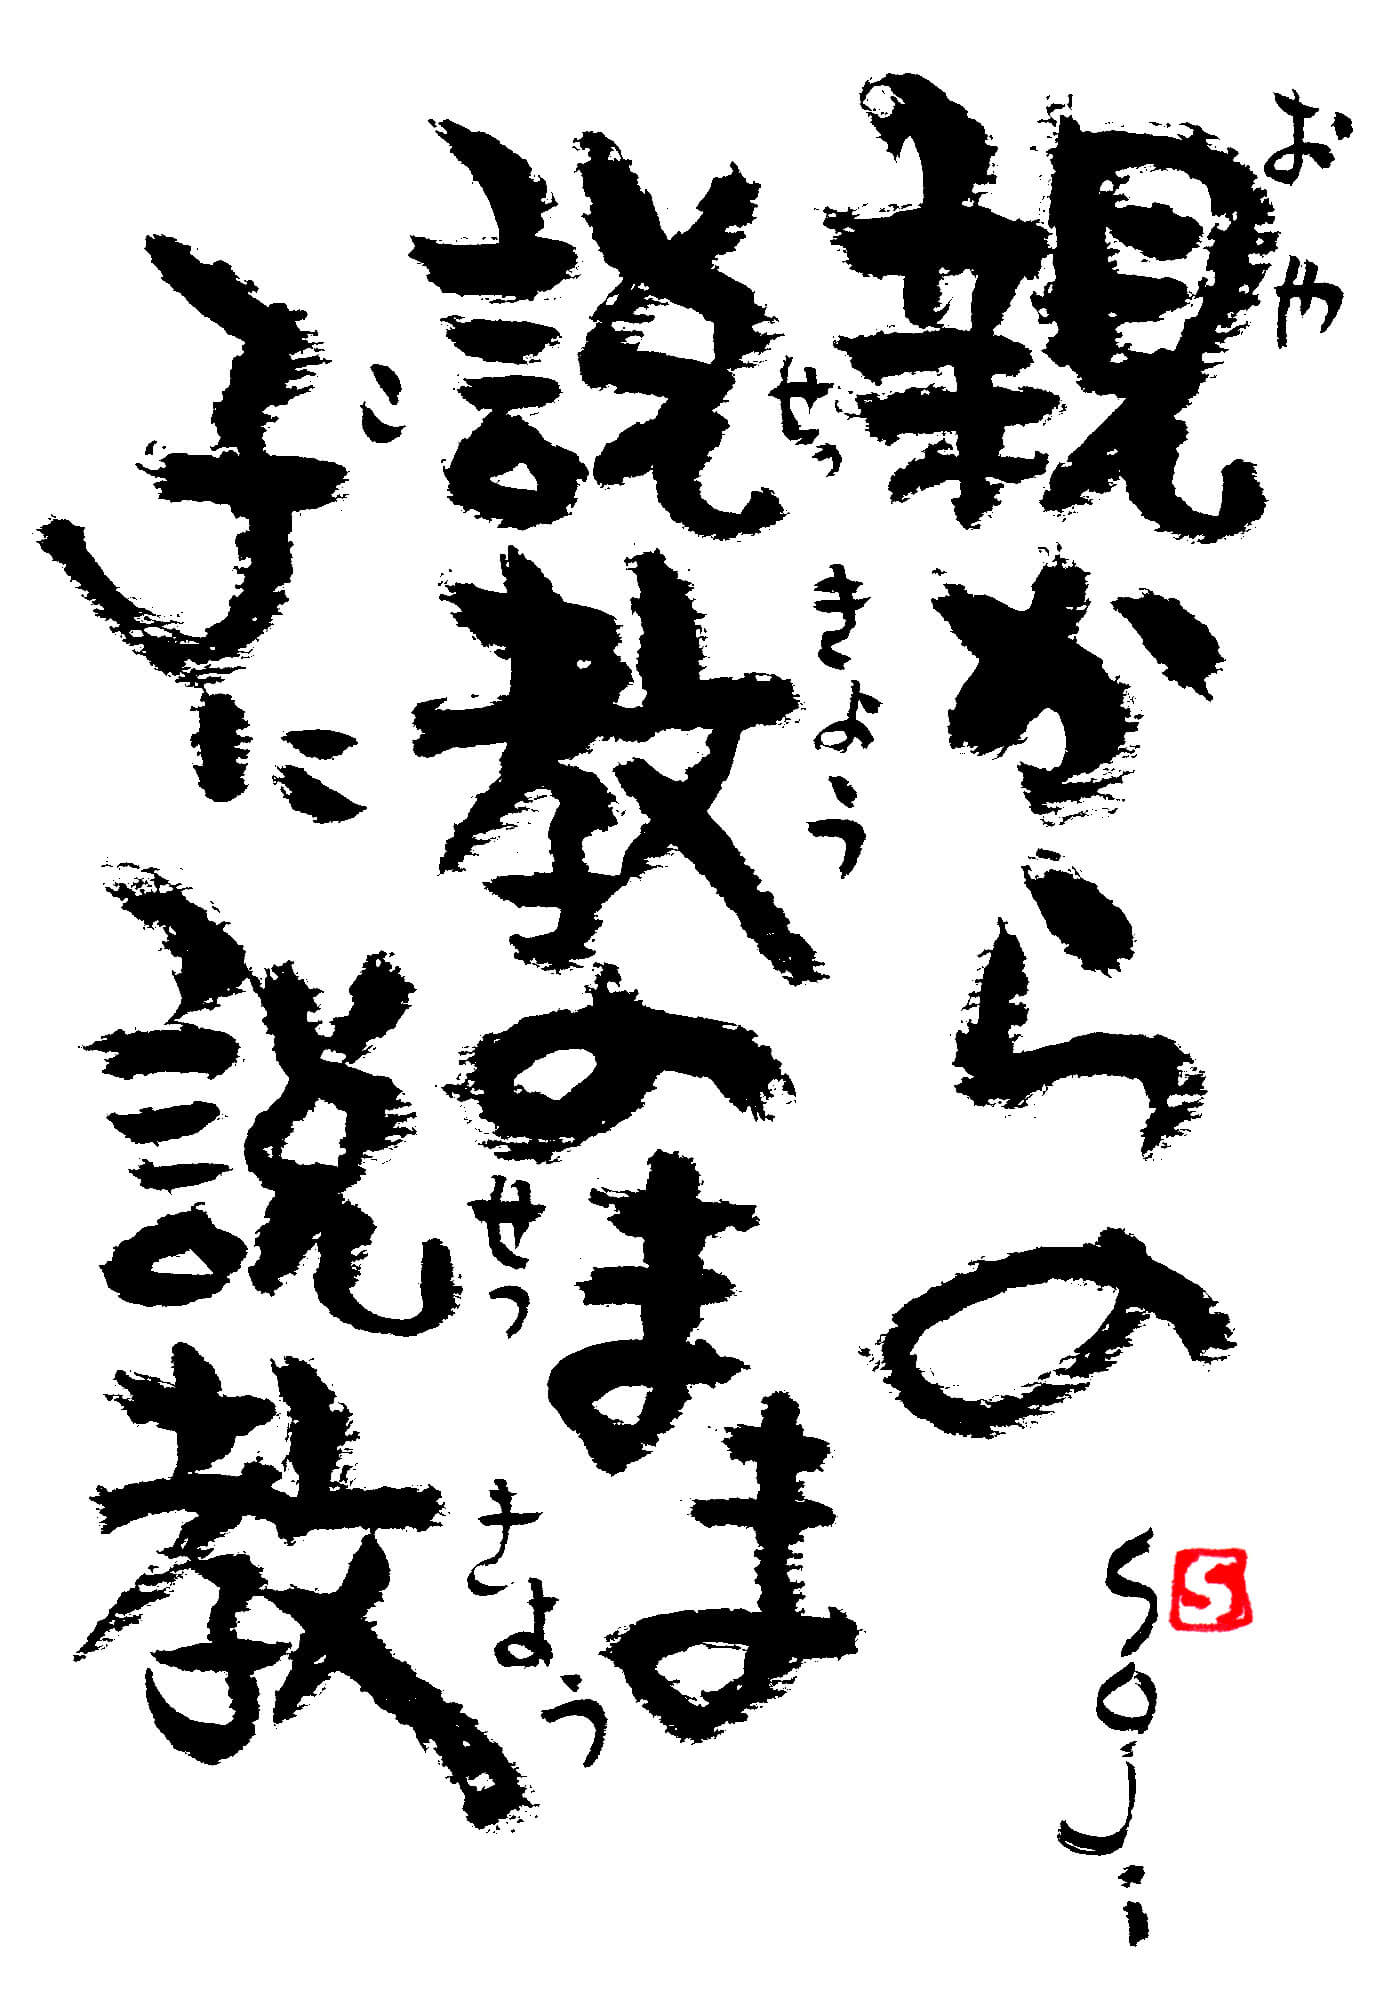 おや
親からの
せっきょう
説教のまま
こ
子に説教
せっきょう
soji
S